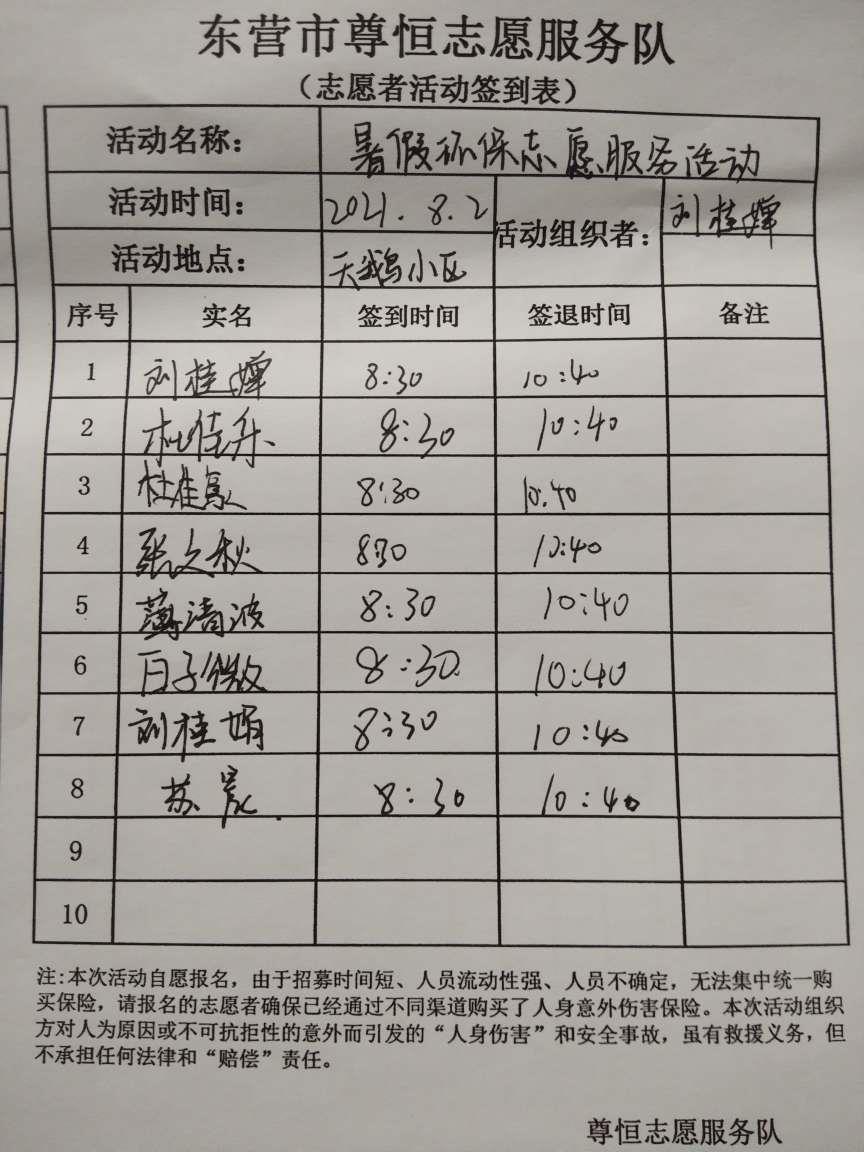 东营市尊恒志愿服务队
（志愿者活动签到表）
活动名称： 暑假环保志愿服务活动
活动时间： 2021.8.2 活动组织者： 刘桂婵
活动地点： 天鹅小区
序号 实名 签到时间 签退时间 备注
1 刘桂婵 8:30 10:40
2 杜佳乐 8:30 10:40
3 杜佳 8:30 10:40
4 张文秋 8:30 10:40
5 薄清波 8:30 10:40
6 白子微 8:30 10:40
7 刘桂娟 8:30 10:40
8 苏 8:30 10:40
9
10
注:本次活动自愿报名，由于招募时间短、人员流动性强、人员不确定，无法集中统一购
买保险，请报名的志愿者确保已经通过不同渠道购买了人身意外伤害保险。本次活动组织
方对人为原因或不可抗拒性的意外而引发的“人身伤害”和安全事故，虽有救援义务，但
不承担任何法律和“赔偿”责任。
尊恒志愿服务队